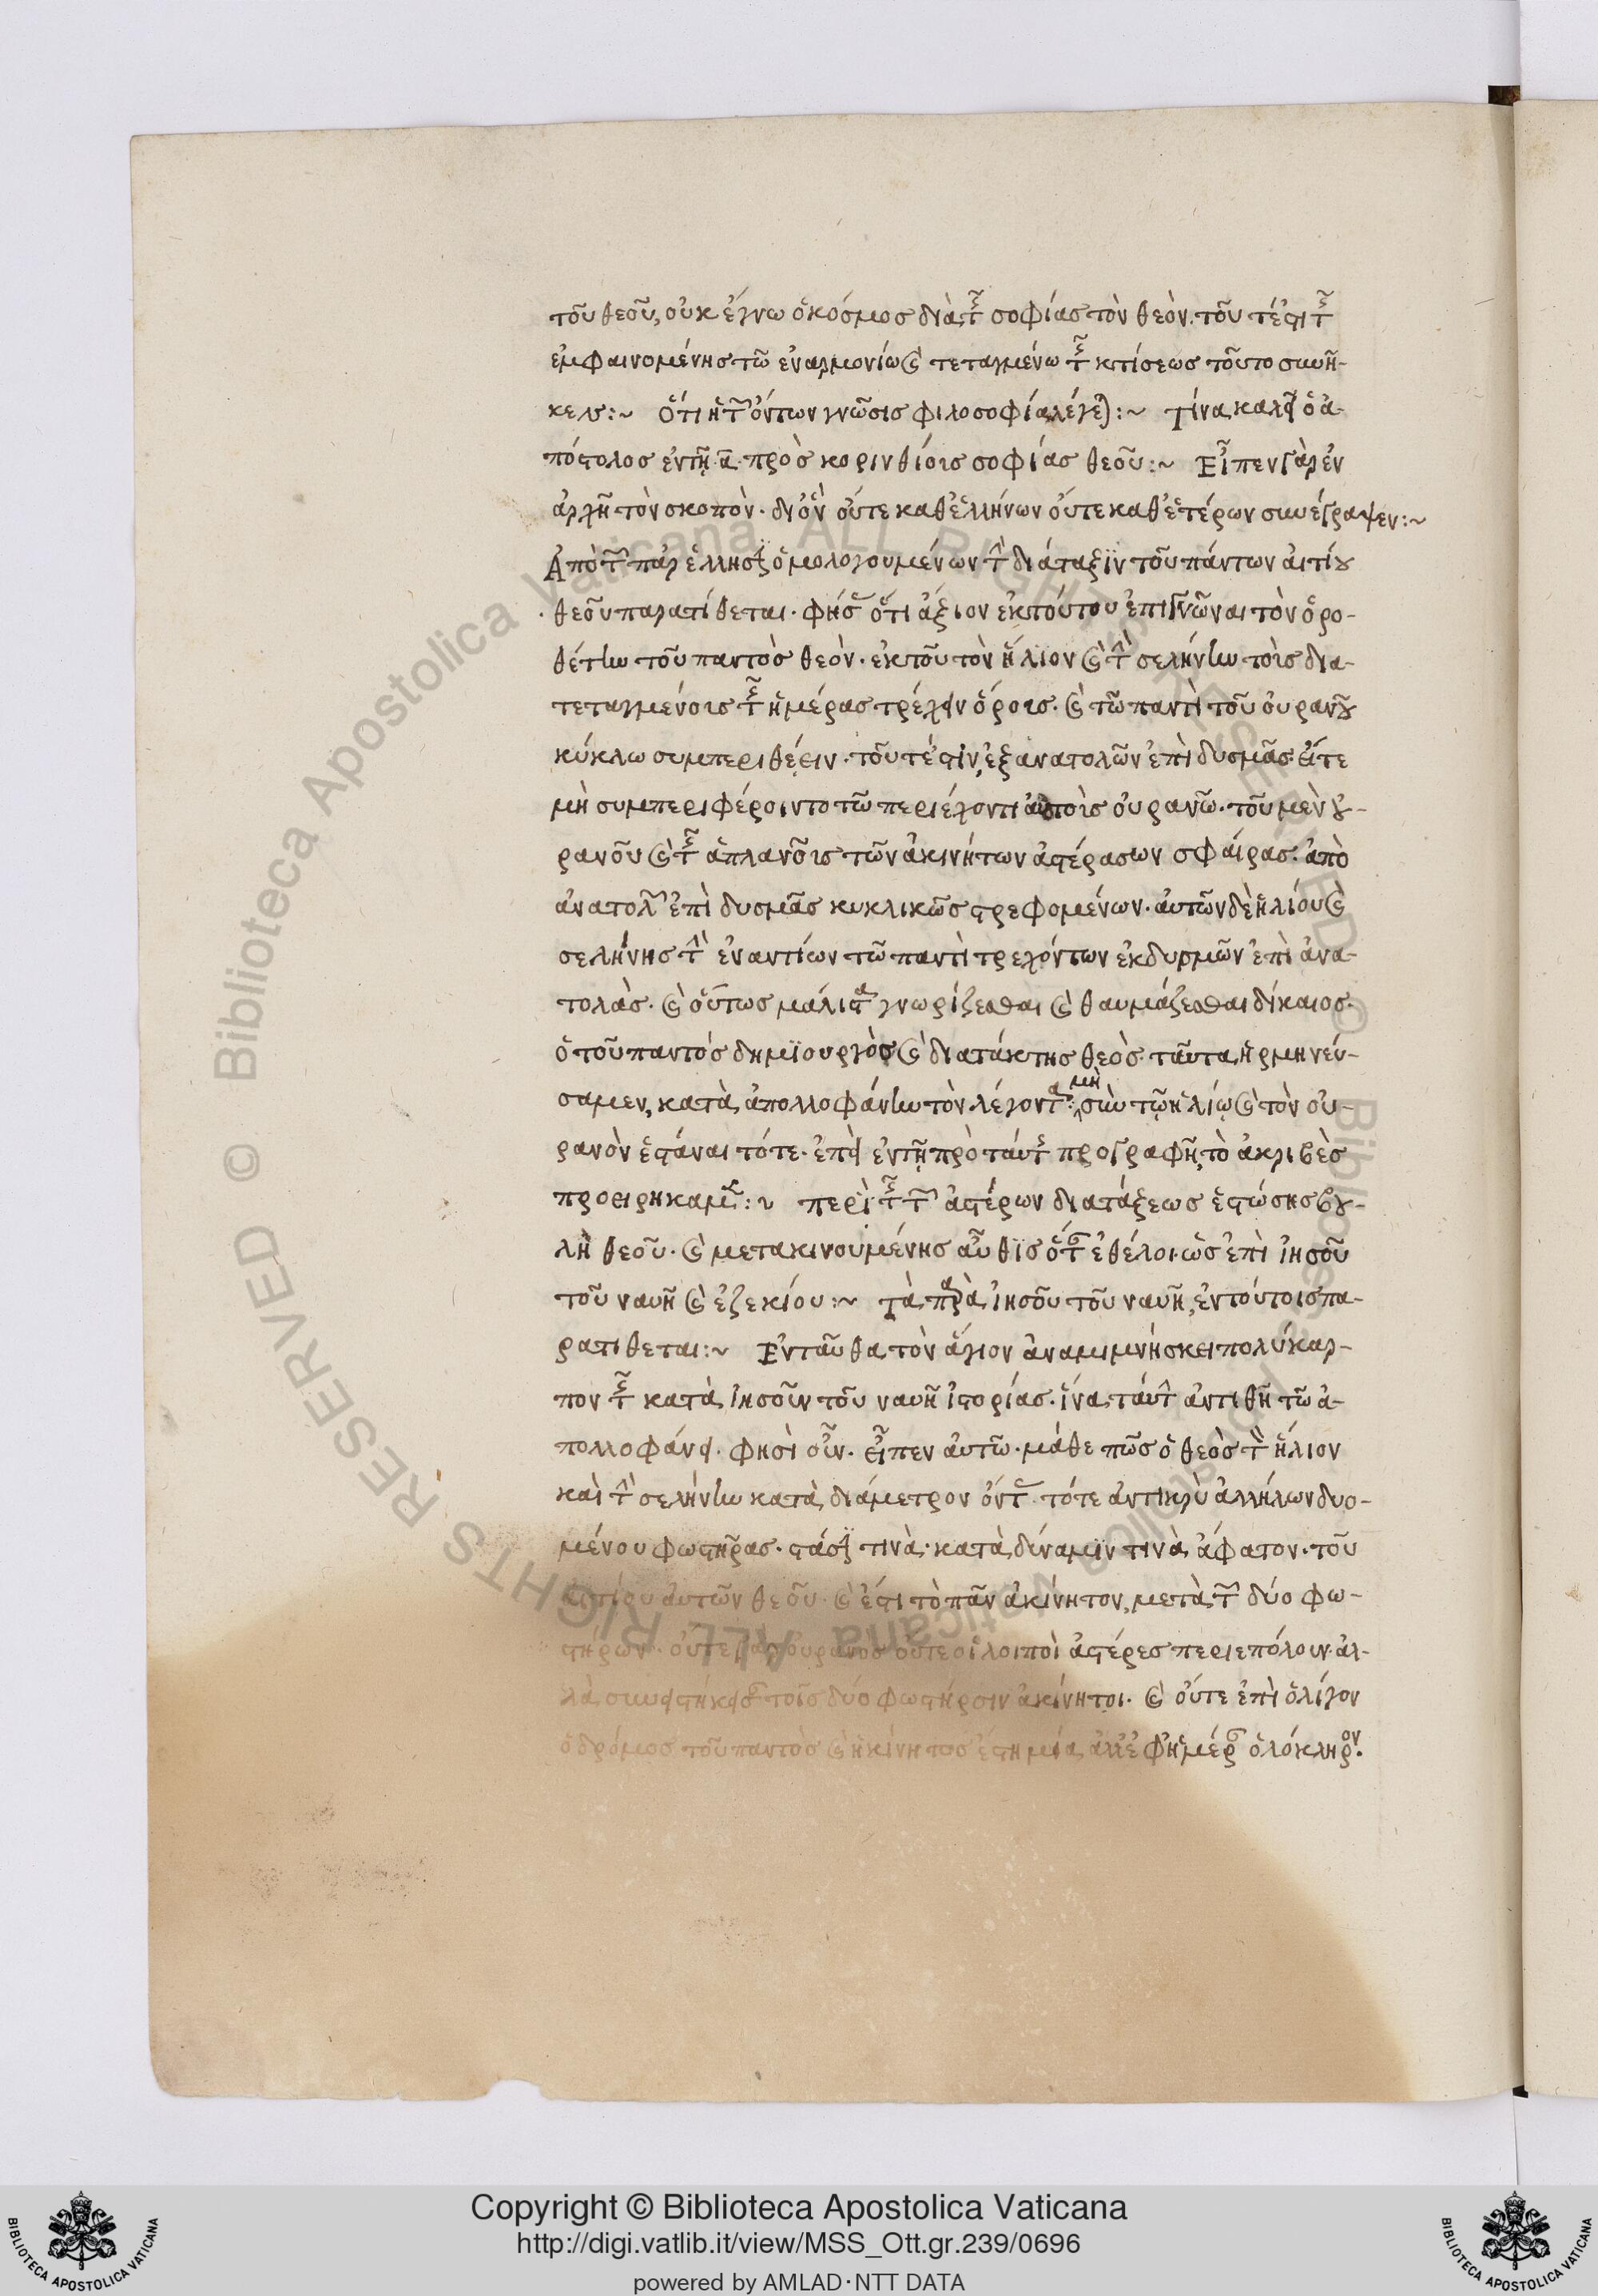 τοῦ θεοῦ, οὐκ ἔγνω ὁ κόσμος διὰ τῆς σοφίας τὸν θεὸν. τοῦ τέστι τῆς
ἐμφαινομένης τῶ ἐναρμονίω καὶ τεταγμένω τῆς κτίσεως τοῦτο συνῆ-
κεν :~ ὅτι ἡ τῶν ὄντων γνῶσις φιλοσοφία λέγεται :~ τίνα καλεῖ ὁ ἀ-
πόστολος ἐν τῆ α πρὸς κορινθίοις σοφίας θεοῦ :~ Εἶπεν γὰρ ἐν
ἀρχῆ τὸν σκοπὸν. δι ὃν οὔτε καθ ἑλλήνων οὔτε καθ ἑτέρων συνέγραψεν :~
Ἀπὸ τῶν παρ ἕλλησιν ὁμολογουμένων τὴν διάταξιν τοῦ πάντων αἰτίου
θεοῦ παρατίθεται. φήσας ὅτι ἄξιον ἐκ τούτου ἐπιγνῶναι τὸν ὁρο-
θέτην τοῦ παντὸς θεὸν. ἐκ τοῦ τὸν ἥλιον καὶ τὴν σελήνην τοῖς δια-
τεταγμένοις τῆς ἡμέρας τρέχειν ὅροις. καὶ τῶ παντὶ τοῦ οὐρανοῦ
κύκλω συμπεριθέειν. τοῦ τέστιν, ἐξ ἀνατολῶν ἐπὶ δυσμᾶς. εἴτε
μὴ συμπεριφέροιντο τῶ περιέχοντι αὐτοῖς οὐρανῶ. τοῦ μὲν οὐ-
ρανοῦ καὶ τῆς ἁπλανοῦς τῶν ἀκινήτων ἀστέρασων σφαίρας. ἀπὸ
ἀνατολῶν ἐπὶ δυσμᾶς κυκλικῶς στρεφομένων. αὐτῶν δὲ ἡλίου καὶ
σελήνης τὴν ἐναντίων τῶ παντὶ τρεχόντων ἐκ δυσμῶν ἐπὶ ἀνα-
τολὰς. καὶ οὕτως μάλιστα γνωρίζεσθαι καὶ θαυμάζεσθαι δίκαιος.
ὁ τοῦ παντὸς δημϊουργὸς καὶ διατάκτης θεὸς. ταῦτα ἡρμηνεύ-
σαμεν, κατὰ ἀπολλοφάνην τὸν λέγοντα. μὴ σὺν τῷ ἡλίῳ καὶ τὸν οὐ-
ρανὸν ἑστάναι τότε. ἐπεὶ ἐν τῇ πρὸ ταύτης προγραφῆ, τὸ ἀκριβὲς
προειρήκαμεν :~ περὶ τῆς τῶν ἀστέρων διατάξεως ἑστώσης βου-
λῆ θεοῦ. καὶ μετακινουμένης αὖθϊς ὅταν ἐθέλοι. ὡς ἐπὶ ἰησοῦ
τοῦ ναυῆ καὶ ἐζεκίου :~ τὰ παρὰ ἰησοῦ τοῦ ναυῆ, ἐν τούτοις πα-
ρατιθεται :~ Ἐνταῦθα τὸν ἅγιον ἀναμιμνήσκει πολύκαρ-
πον τῆς κατὰ ἰησοῦν τοῦ ναυῆ ἱστορίας. ἵνα ταύτην ἀντιθῆ τῶ ἀ-
πολλοφάνει. φησὶ οὖν. εἶπεν αὐτῶ. μάθε πῶς ὁ θεὸς τὸν ἥλιον
καὶ τὴν σελήνην κατὰ διάμετρον ὄντας τότε ἀντικρὺ ἀλλήλων δυο-
μένου φωστῆρας. στάσιν τινὰ. κατὰ δύναμϊν τινὰ ἄφατον. τοῦ
αἰτίου αὐτῶν θεοῦ. καὶ ἔστι τὸ πᾶν ἀκίνητον, μετὰ τῶν δύο φω-
στήρων. οὔτε γὰρ οὐρανὸς οὔτε οἱ λοιποὶ ἀστέρες περιεπόλουν. ἀλ-
λὰ συνειστήκεισαν τοῖς δύο φωστήρσιν ἀκίνητοι. καὶ οὔτε ἐπὶ ὀλίγον
ὁ δρόμος τοῦ παντὸς καὶ ἡ κίνησις ἔστη μία ἀλλ ἐφ ἡμέραν ὁλόκληρον.